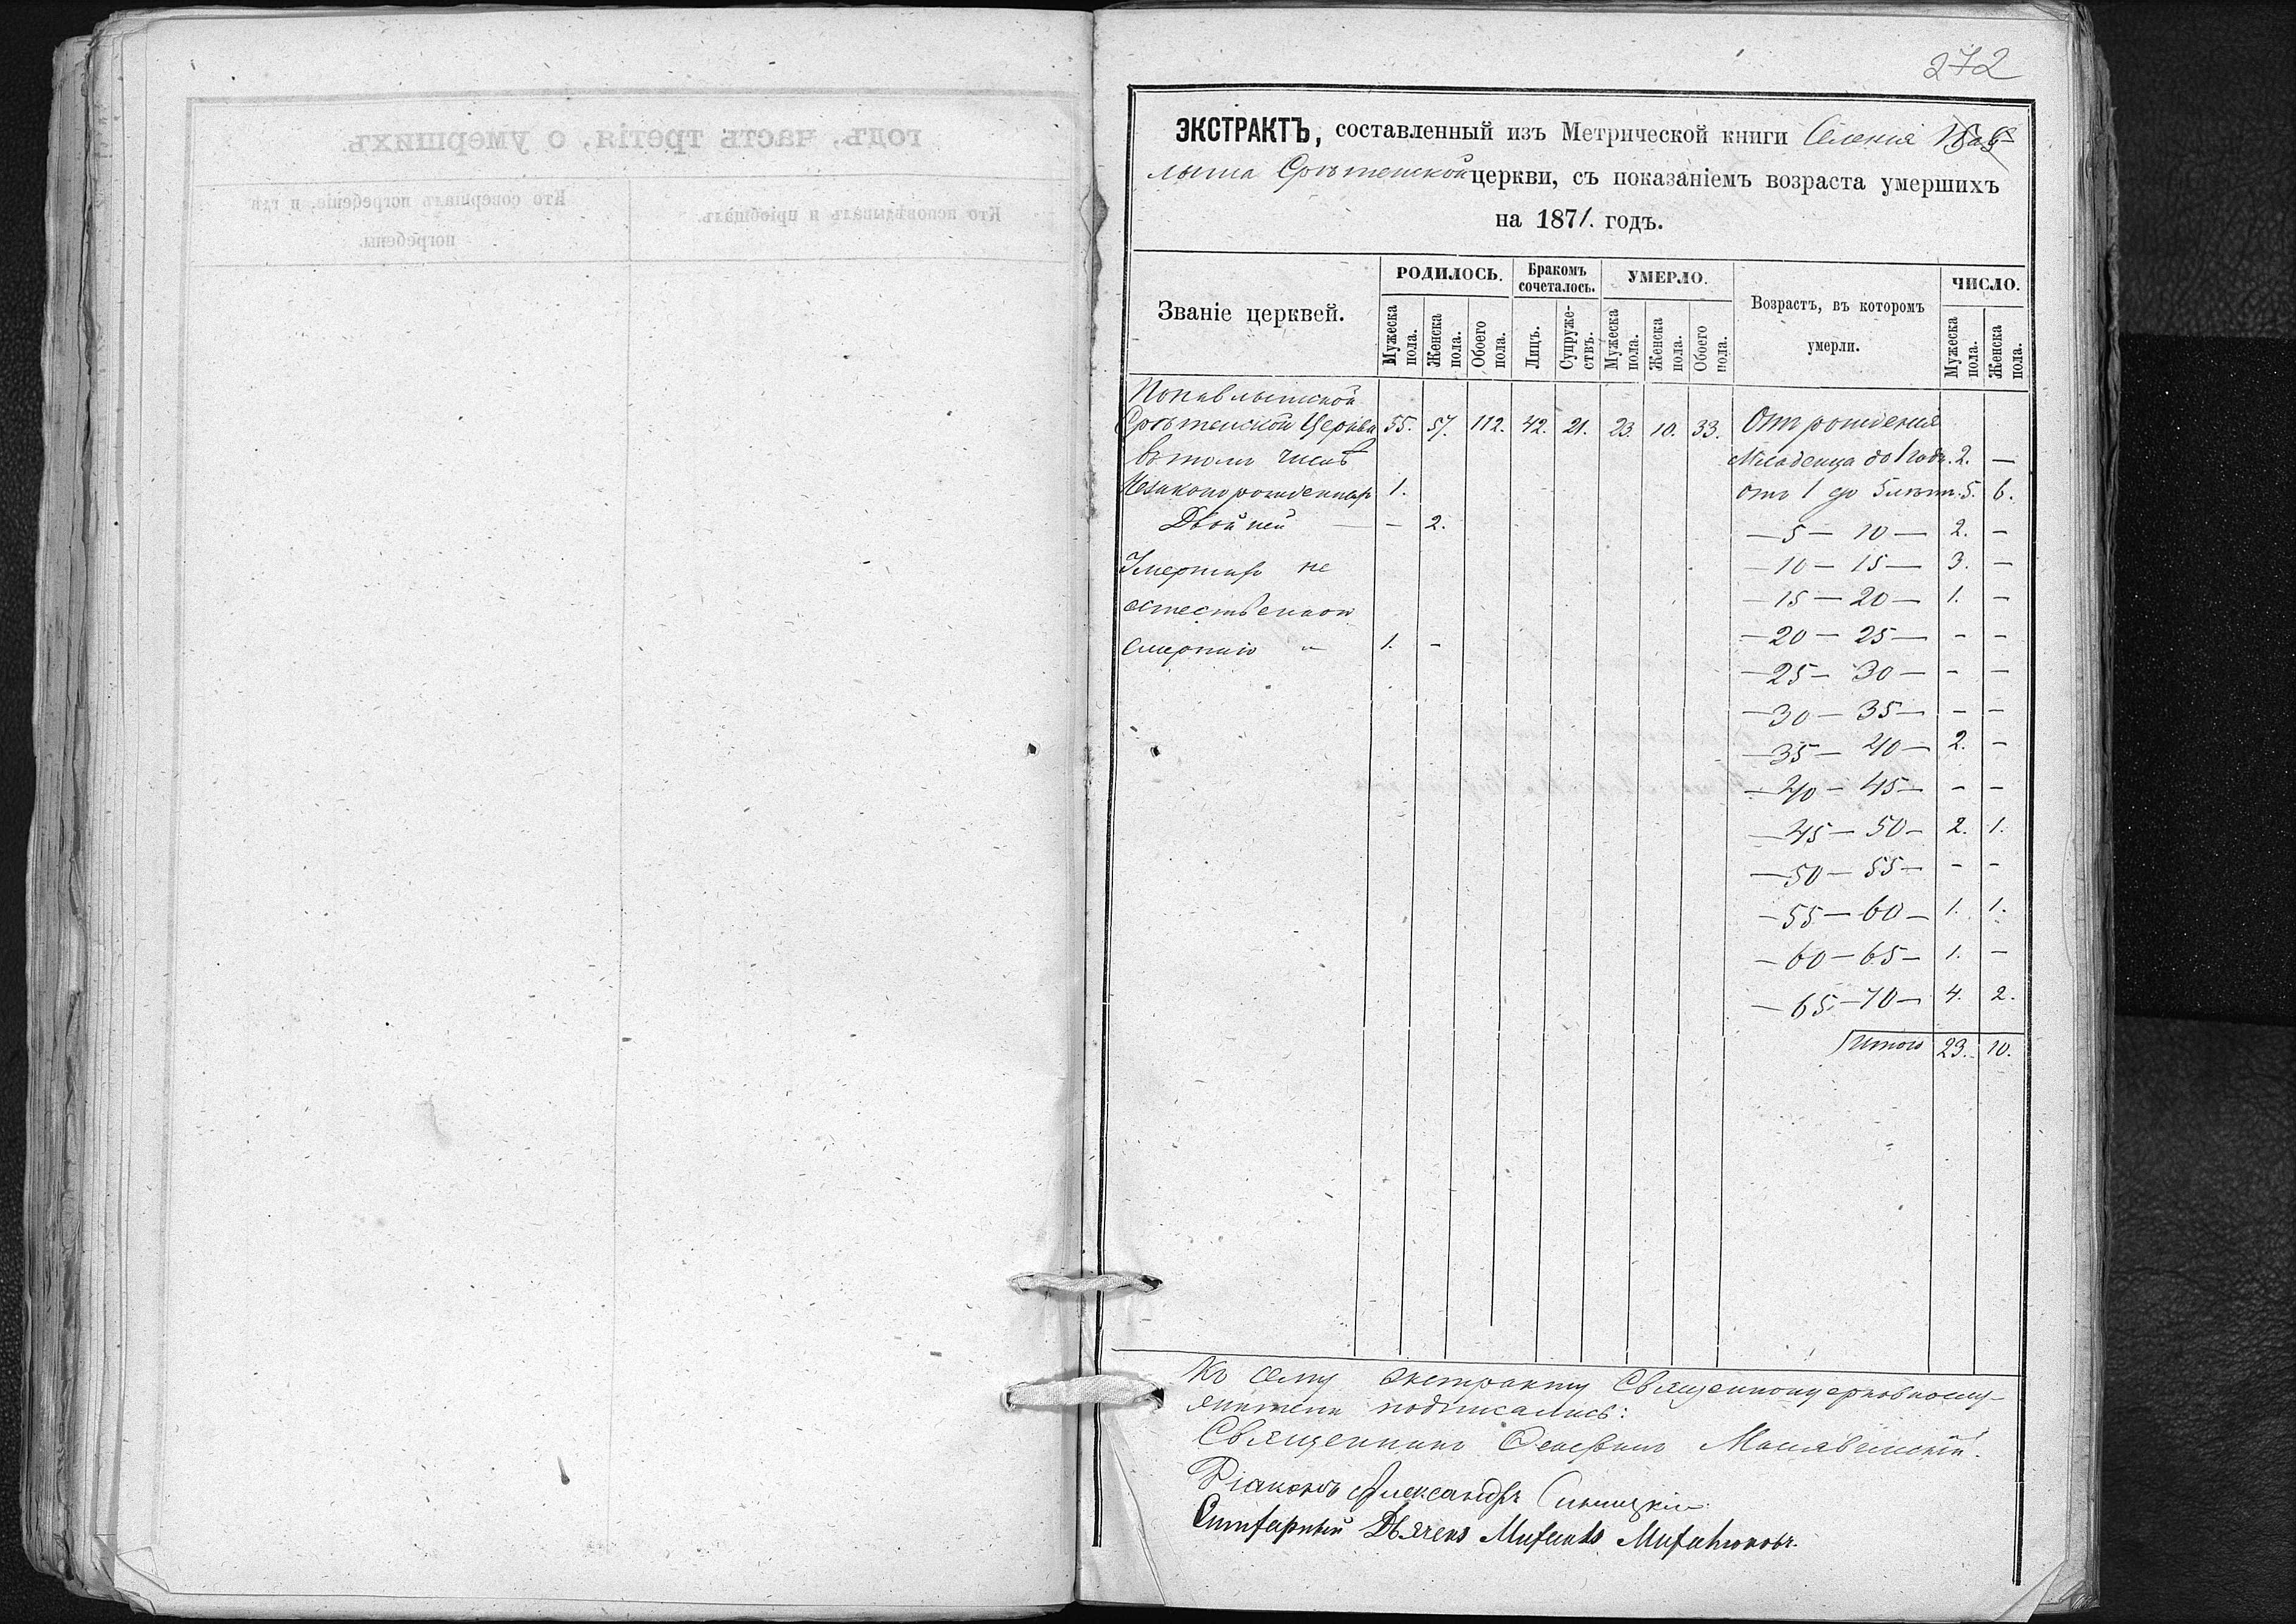 272
ЭКСТРАКТЪ, составленный изъ Метрической книги Селенія
Срѣтенской церкви, съ показаніемъ возраста умершихъ
на 1871. годъ.
Званіе церквей. РОДИЛОСЬ. Бракомъ сочеталось. УМЕРЛО. Возрастъ, въ которомъ умерли. ЧИСЛО.
Мужеска пола. Женска пола. Обоего пола. Лицъ. Супружествъ. Мужеска пола. Женска пола. Обоего пола. Мужеска пола. Женска пола.
Срѣтенской Церкви 55. 57. 112. 42. 21. 23. 10. 33. От рожденія
въ томъ числѣ Младенца до 1 года. 2. —
Незаконорожденныхъ 1. отъ 1 до 5 лѣтъ. 5. 6.
Двойней — — 2. — 5 — 10 — 2. —
Умершихъ не — 10 — 15 — 3. —
естественной — 15 — 20 — 1. —
смертію " 1. — — 20 — 25 — — —
— 25 — 30 — — —
— 30 — 35 — — —
— 35 — 40 — 2. —
— 40 — 45 — — —
— 45 — 50 — 2. 1.
— 50 — 55 — — —
— 55 — 60 — 1. 1.
— 60 — 65 — 1. —
— 65 — 70 — 4. 2.
Итого 23. 10.
Къ сему экстракту Священноцерковнослу-
жители подписались:
Священникъ
Діаконъ Александръ
годъ, часть третія, о умершихъ.
Кто исповѣдывалъ и пріобщалъ. Кто совершалъ погребеніе, и гдѣ
погребены.